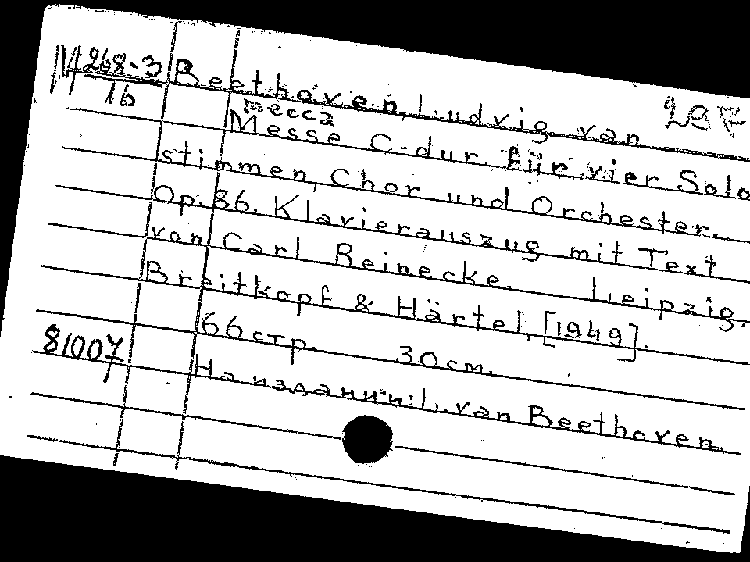 М 268-3 Beethoven, Ludvig van 297
16 месса
Messe C-dur für vier Solo
stimmen, Chor und Orchester.
Op. 86. Klavierauszug mit Text
van Carl Reinecke. Leipzig,
Breitkopf & Härtel, [1949].
66 стр. 30 см.
81007
На издании: L. van Beethoven